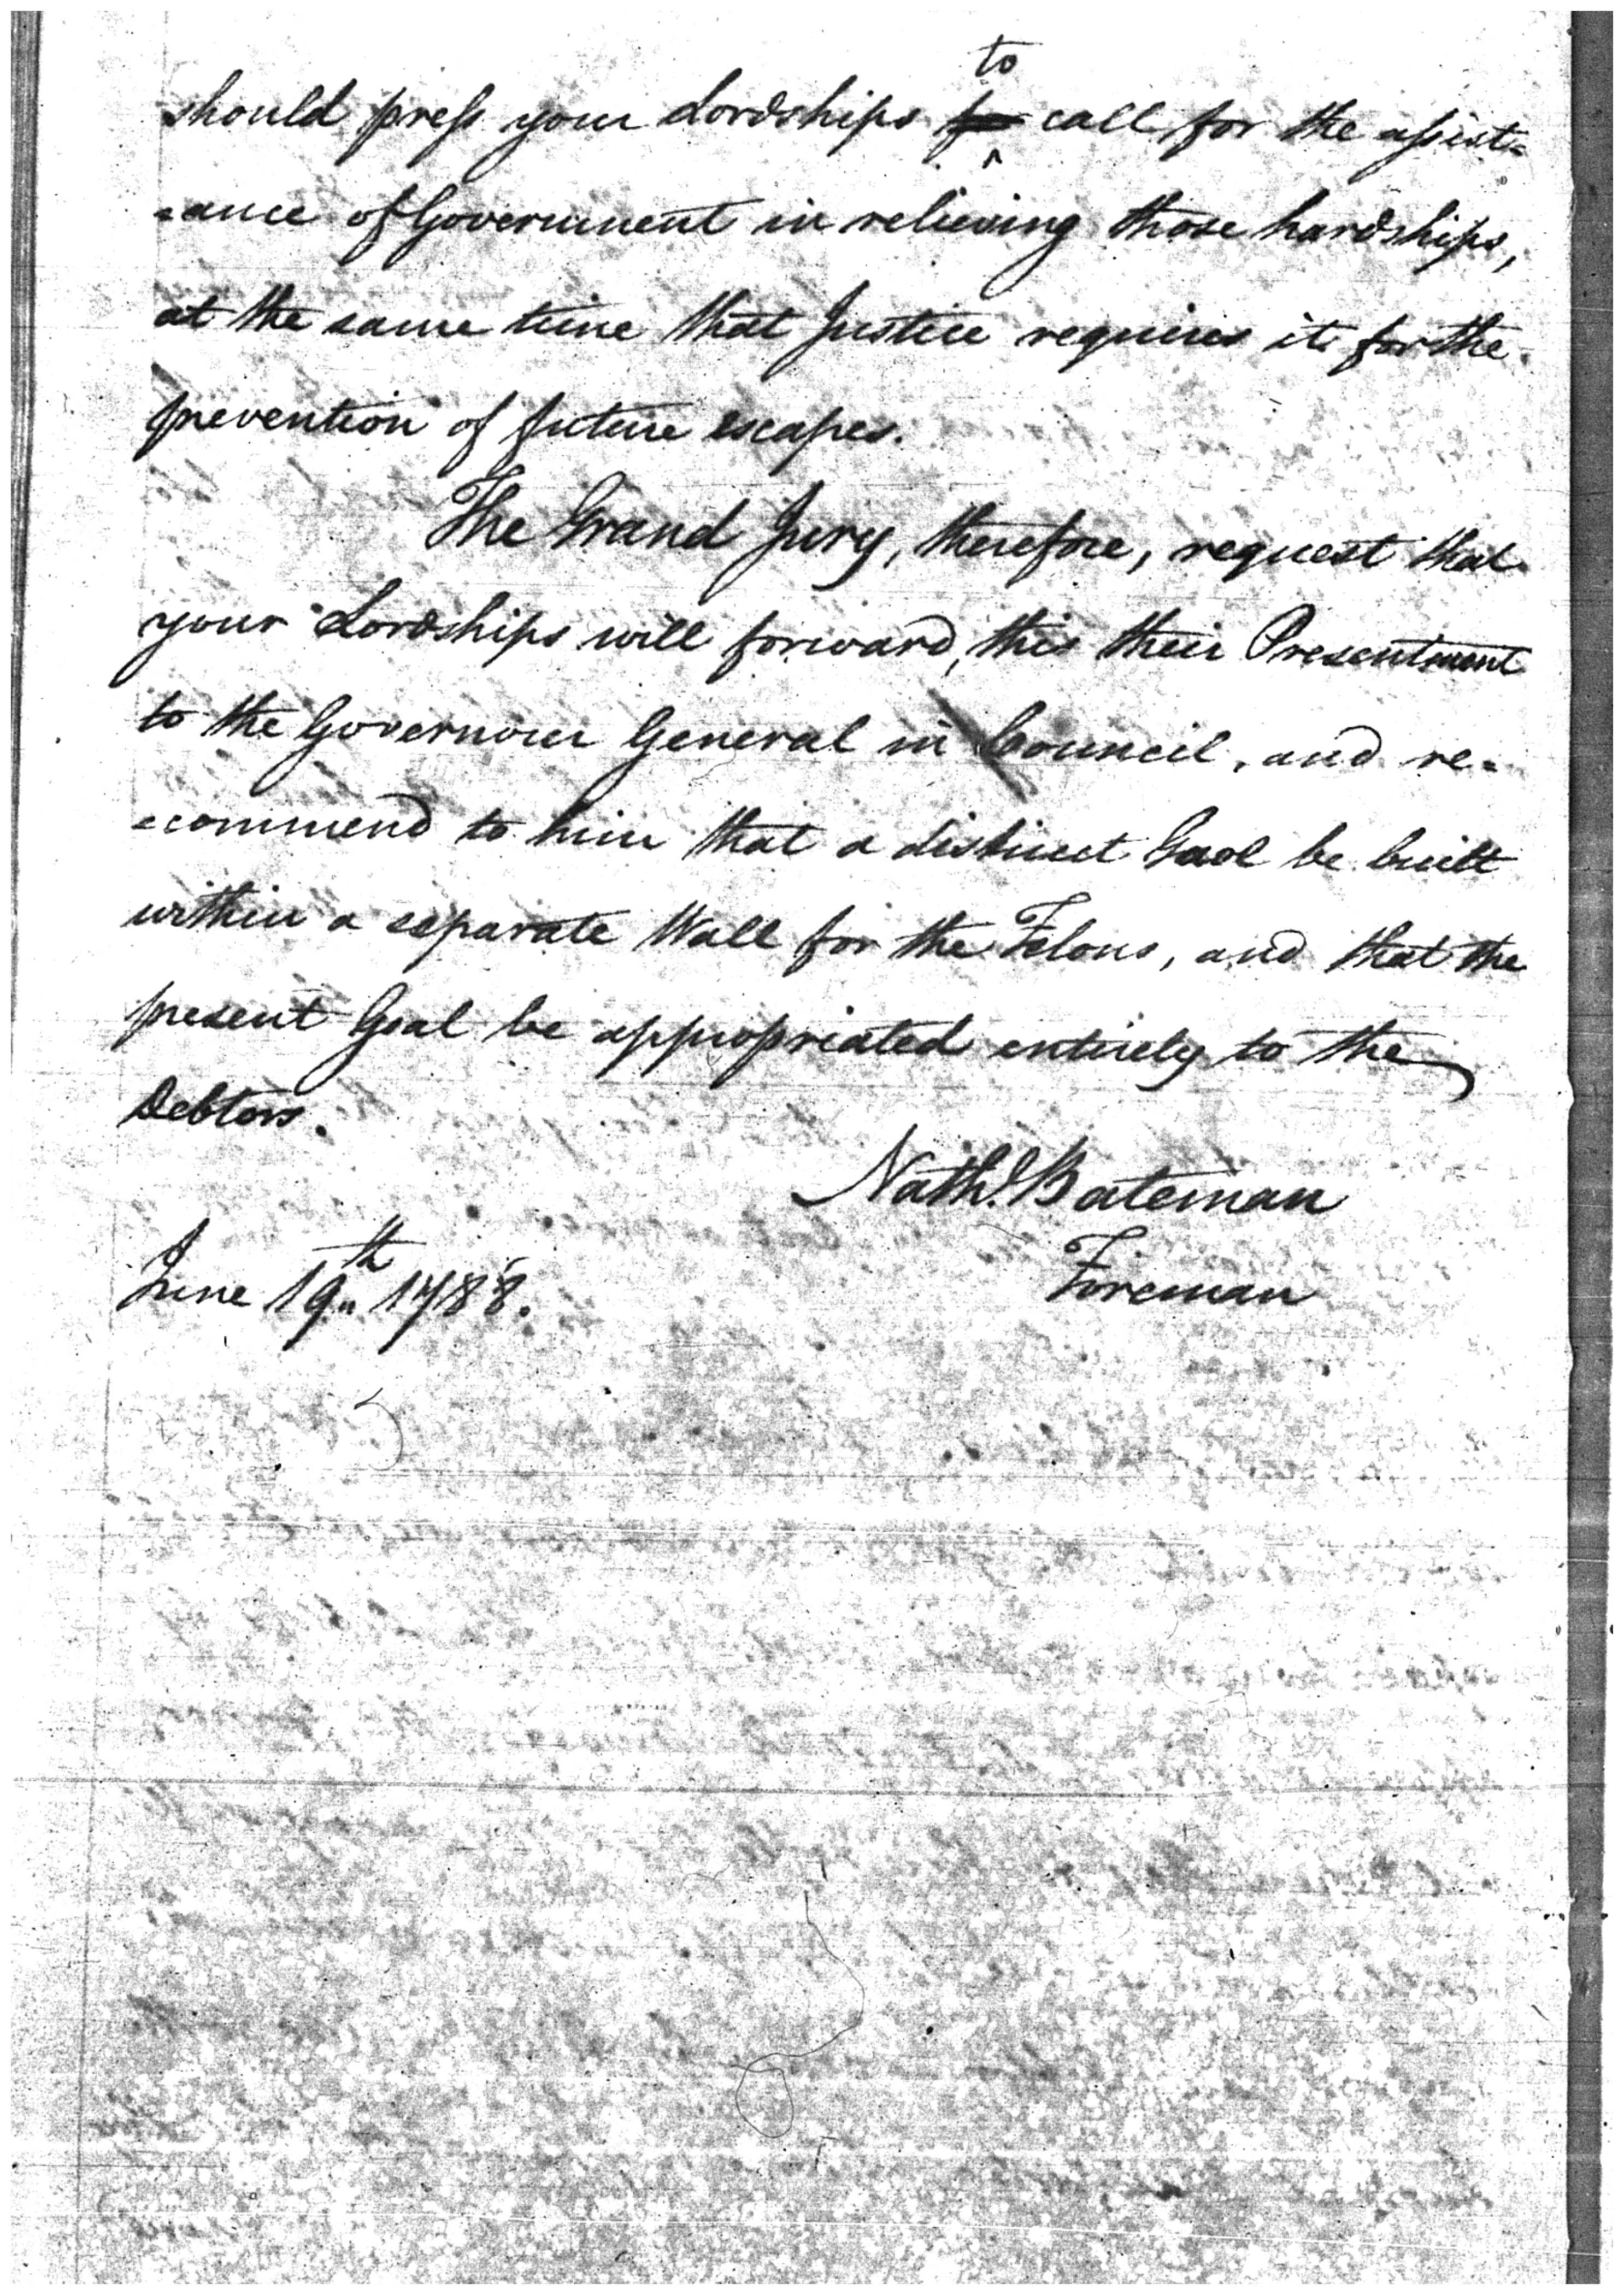 should press your Lordships to call for the assist=
=ance of Government in relieving those hardships,
at the same time that Justice requires it for the
prevention of future escapes.
The Grand Jury, therefore, request that
your Lordships will forward, this their Presentment
to the Governour General in Council, and re=
=commend to him that a distinct Gaol be built
within a separate Wall for the Felons, and that the
present Goal be appropriated entirely to the
Debtors.
Nathl. Bateman
Foreman
June 19th 1788.